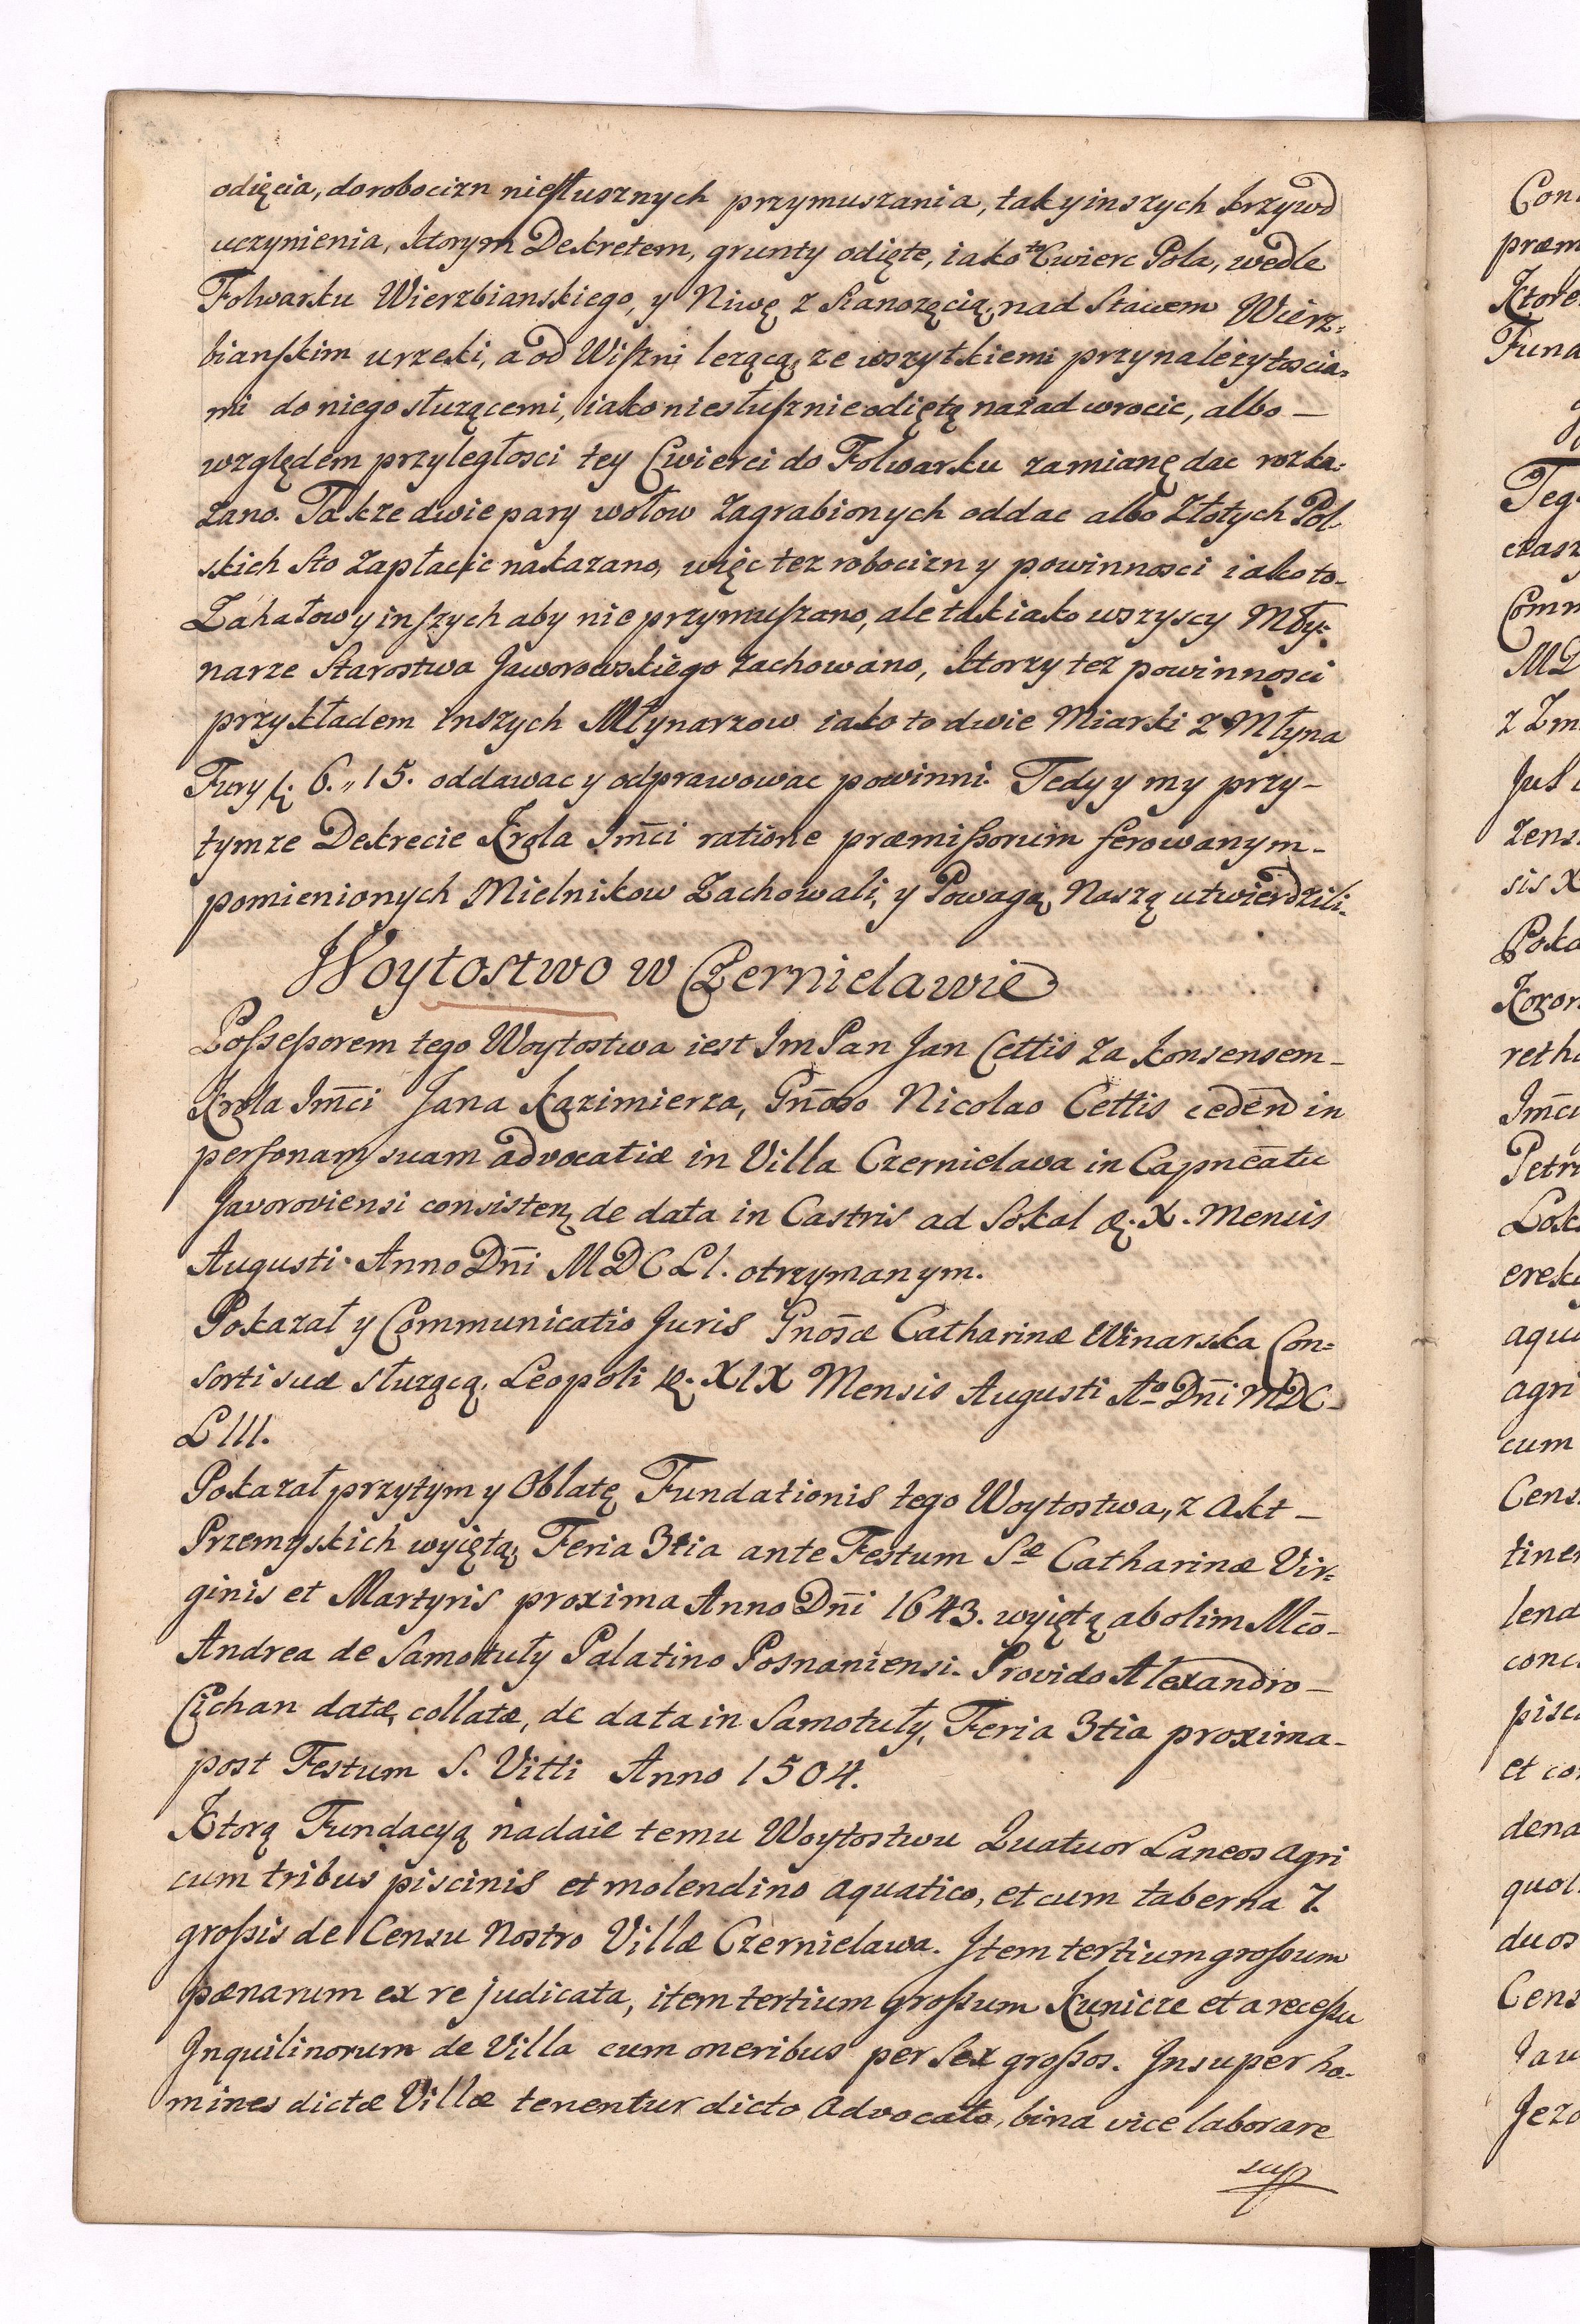 odięcia, do robocizn niesłusznych przymuszania, tak y inszych krzywd
uczynienia, ktorym Dekretem, grunty odięte, iako to Cwierc Pola, wedle
Folwarku Wierzbianskiego, y Niwę z Sianozęcią, nad Stawem Wierz=
bianskim u rzeki, a od Wiszni lezącą, ze wszytkiemi przynalezytoscia=
mi do niego słuzącemi, iako niesłusznie odiętą nazad wrocic, albo –
względem przyległosci tey Cwierci do Folwarku zamianę dac rozka=
zano. Takze dwie pary wołow zagrabionych oddac albo Złotych Pol=
skich Sto zapłacic nakazano, więc tez robocizn y powinnosci iako to –
Zahatow y inszych aby nie przymuszano, ale tak iako wszyscy Mły=
narze Starostwa Jaworowskiego zachowano, ktorzy tez powinnosci
przykładem inszych Młynarzow iako to dwie Miarki z Młyna
Fury 6. „ 15. oddawac y odprawowac powinni. Tedy y my przy –
tymze Dekrecie Krola Jmci ratione præmissorum ferowanym –
pomienionych Mielnikow Zachowali, y Powagą Naszą utwierdzili.
Woytostwo w Czernielawie
Possessorem tego Woytostwa iest Jm Pan Jan Cettis za konsensem –
Krola Jmci Jana Kazimierza, Gnoso Nicolao Cettis cedend in
personam suam advocatiæ in Villa Czernielawa in Capneatu
Javoroviensi consisten, de data in Castris ad Sokal X. Mensis
Augusti Anno Dni MDCLI. otrzymanym.
Pokazał y Communicatio Juris Gnosæ Catharinæ Winarska Con=
sorti suæ słuzącą, Leopoli XIX Mensis Augusti Ao Dni MDC –
LIII.
Pokazał przytym y Oblatę Fundationis tego Woytostwa, z Akt –
Przemyskich wyiętą, Feria 3tia ante Festum Sæ Catharinæ Vir=
ginis et Martyris proxima Anno Dni 1643. wyiętą ab olim Mco –
Andrea de Samotuły Palatino Posnaniensi. Provido Alexandro –
Cichan datæ, collatæ, de data in Samotuły, Feria 3tia proxima –
post Festum S. Vitti Anno 1504.
Ktorą Fundacyą nadaie temu Woytostwu Quatuor Laneos agri
cum tribus piscinis et molendino aquatico, et cum taberna 7.
grossis de Censu Nostro Villæ Czernielawa. Item tertium grossum
pœnarum ex re judicata, item tertium grossum Kunicze et a recessu
Inquilinorum de Villa cum oneribus per Sex grossos. Insuper ho=
mines dictæ Villæ tenentur dicto Advocato, bina vice laborare